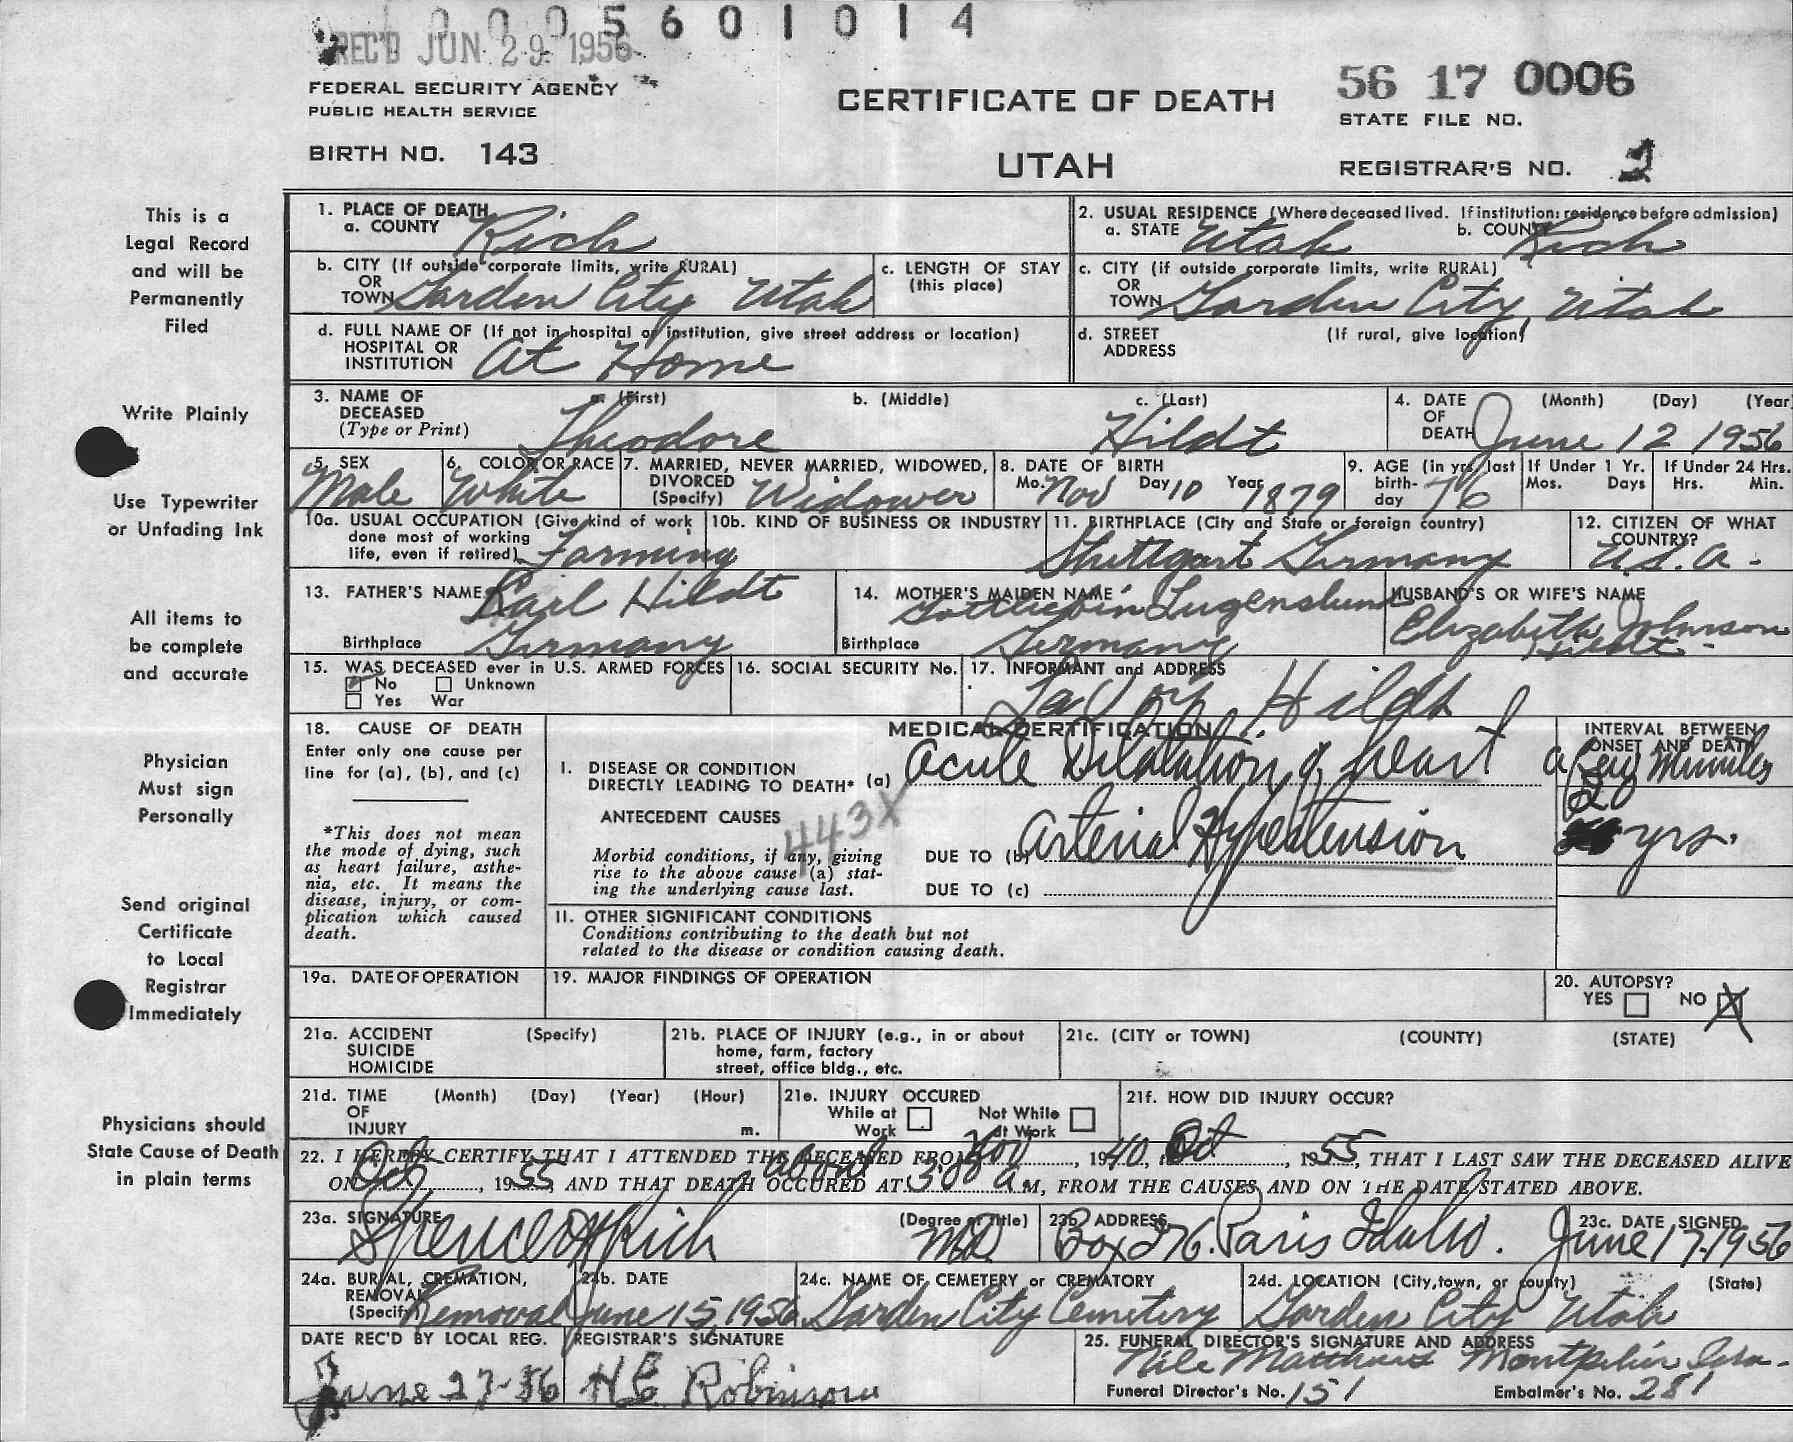 0 0 0 5 6 0 1 0 1 4
REC'D JUN 29 1956
FEDERAL SECURITY AGENCY
PUBLIC HEALTH SERVICE
BIRTH NO. 143
CERTIFICATE OF DEATH
UTAH
56 17 0006
STATE FILE NO.
REGISTRAR'S NO. 2
This is a
Legal Record
and will be
Permanently
Filed
Write Plainly
Use Typewriter
or Unfading Ink
All items to
be complete
and accurate
Physician
Must sign
Personally
Send original
Certificate
to Local
Registrar
Immediately
Physicians should
State Cause of Death
in plain terms
1. PLACE OF DEATH
a. COUNTY Rich
2. USUAL RESIDENCE (Where deceased lived. If institution: residence before admission)
a. STATE Utah b. COUNTY Rich
b. CITY (If outside corporate limits, write RURAL)
OR
TOWN Garden City Utah
c. LENGTH OF STAY
(this place)
c. CITY (if outside corporate limits, write RURAL)
OR
TOWN Garden City, Utah
d. FULL NAME OF (If not in hospital or institution, give street address or location)
HOSPITAL OR
INSTITUTION At Home
d. STREET (If rural, give location)
ADDRESS
3. NAME OF DECEASED (Type or Print)
a. (First) b. (Middle) c. (Last)
Theodore Hildt
4. DATE OF DEATH (Month) (Day) (Year)
June 12 1956
5. SEX
Male
6. COLOR OR RACE
White
7. MARRIED, NEVER MARRIED, WIDOWED,
DIVORCED
(Specify) Widower
8. DATE OF BIRTH
Mo. Nov Day 10 Year 1879
9. AGE (in yrs. last
birth-
day 76
If Under 1 Yr.
Mos. Days
If Under 24 Hrs.
Hrs. Min.
10a. USUAL OCCUPATION (Give kind of work
done most of working
life, even if retired) Farming
10b. KIND OF BUSINESS OR INDUSTRY
11. BIRTHPLACE (City and State or foreign country)
Stuttgart Germany
12. CITIZEN OF WHAT
COUNTRY?
U.S.A.
13. FATHER'S NAME Karl Hildt
Birthplace Germany
14. MOTHER'S MAIDEN NAME
Birthplace Germany
HUSBAND'S OR WIFE'S NAME
Elizabeth Johnson
Hildt
15. WAS DECEASED ever in U.S. ARMED FORCES
No Unknown
Yes War
16. SOCIAL SECURITY No.
17. INFORMANT and ADDRESS
Hildt
18. CAUSE OF DEATH
Enter only one cause per
line for (a), (b), and (c)
*This does not mean
the mode of dying, such
as heart failure, asthe-
nia, etc. It means the
disease, injury, or com-
plication which caused
death.
MEDICAL CERTIFICATION
I. DISEASE OR CONDITION
DIRECTLY LEADING TO DEATH* (a) Acute Dilatation of heart
ANTECEDENT CAUSES
443X
Morbid conditions, if any, giving
rise to the above cause (a) stat-
ing the underlying cause last.
DUE TO (b) Arterial Hypertension
DUE TO (c)
II. OTHER SIGNIFICANT CONDITIONS
Conditions contributing to the death but not
related to the disease or condition causing death.
INTERVAL BETWEEN
ONSET AND DEATH
a few Minutes
20
yrs.
19a. DATE OF OPERATION
19. MAJOR FINDINGS OF OPERATION
20. AUTOPSY?
YES NO X
21a. ACCIDENT (Specify)
SUICIDE
HOMICIDE
21b. PLACE OF INJURY (e.g., in or about
home, farm, factory
street, office bldg., etc.
21c. (CITY or TOWN) (COUNTY) (STATE)
21d. TIME (Month) (Day) (Year) (Hour)
OF
INJURY m.
21e. INJURY OCCURED
While at Not While
Work at Work
21f. HOW DID INJURY OCCUR?
22. I HEREBY CERTIFY THAT I ATTENDED THE DECEASED FROM Nov, 1940, Oct, 1955, THAT I LAST SAW THE DECEASED ALIVE
ON Oct, 1955, AND THAT DEATH OCCURED AT about 3:00 a.M, FROM THE CAUSES AND ON THE DATE STATED ABOVE.
23a. SIGNATURE (Degree or title)
Spencer H Rich MD
23b. ADDRESS
Box 276. Paris Idaho.
23c. DATE SIGNED
June 17. 1956
24a. BURIAL, CREMATION,
REMOVAL
(Specify) Removal
24b. DATE
June 15, 1956
24c. NAME OF CEMETERY or CREMATORY
Garden City Cemetery
24d. LOCATION (City, town, or county) (State)
Garden City Utah
DATE REC'D BY LOCAL REG.
June 27-56
REGISTRAR'S SIGNATURE
H E Robinson
25. FUNERAL DIRECTOR'S SIGNATURE AND ADDRESS
Matthews Montpelier Ida-
Funeral Director's No. 151 Embalmer's No. 281